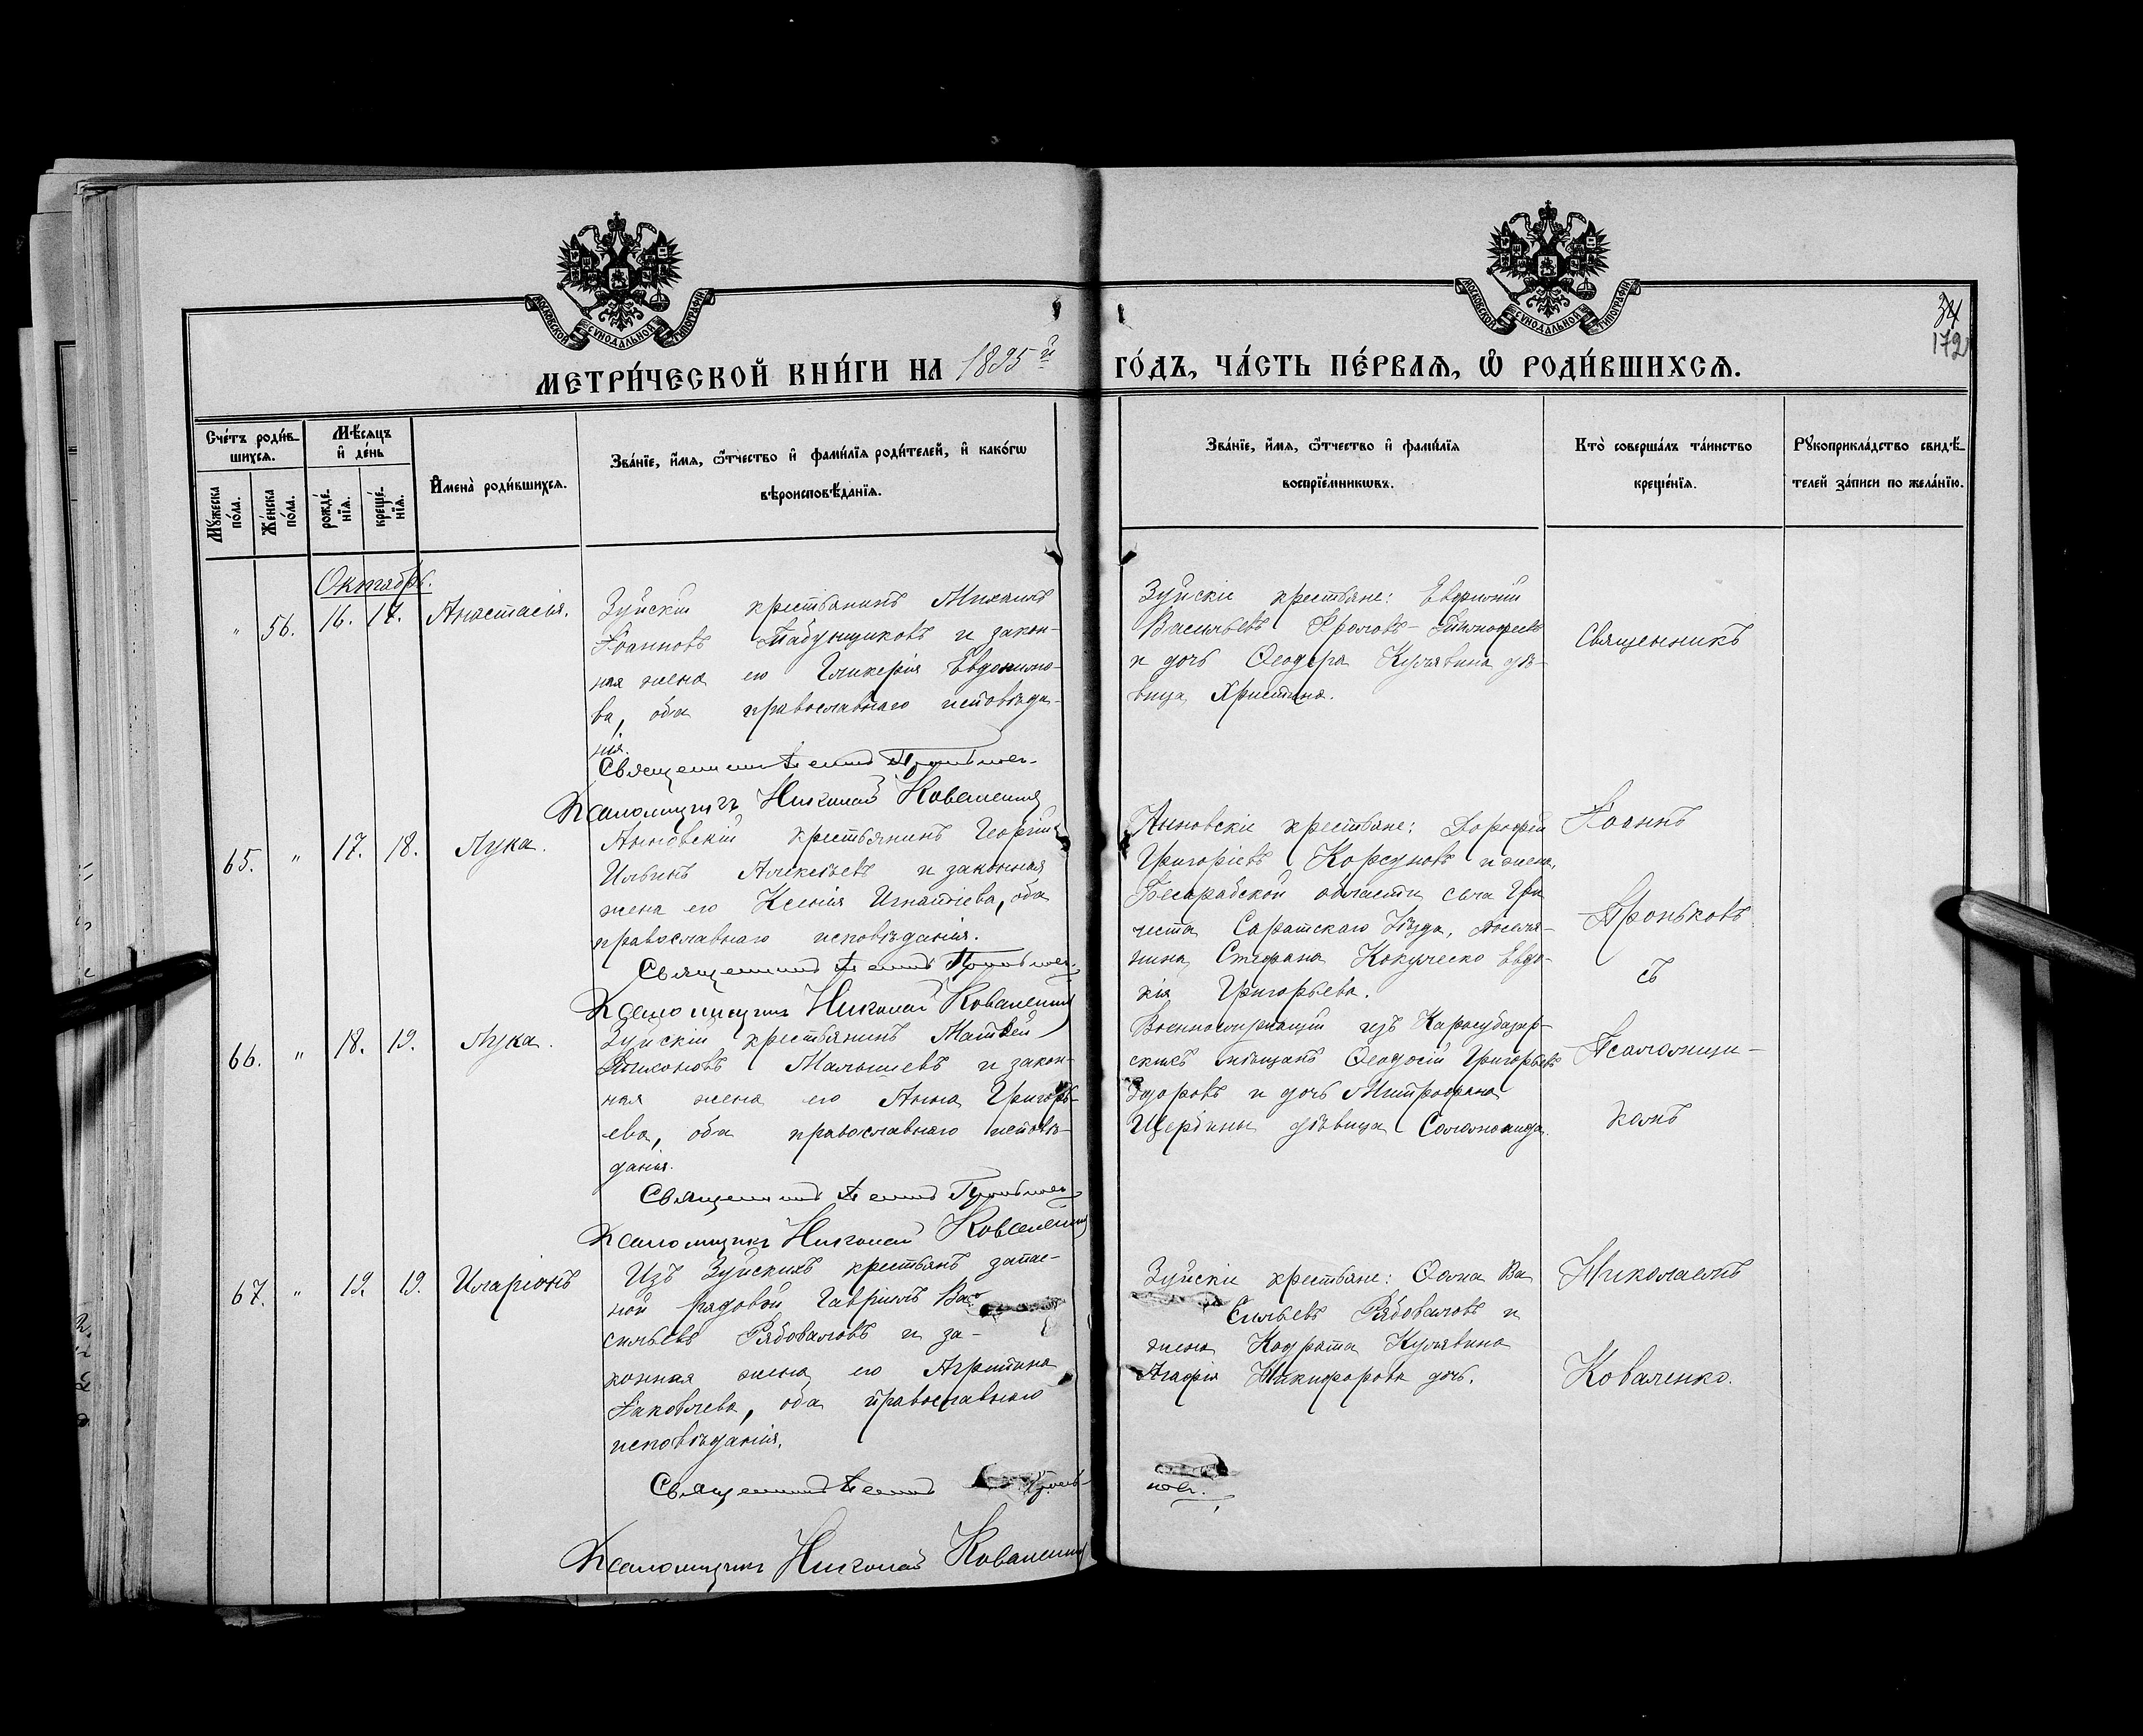 МОСКОВСКОЙ СУНОДАЛЬНОЙ ТИПОГРАФІИ
МОСКОВСКОЙ СУНОДАЛЬНОЙ ТИПОГРАФІИ
34
172
МЕТРИ́ЧЕСКОЙ КНИ́ГИ НА 1895й ГО́ДЪ, ЧА́СТЬ ПЕ́РВАѦ, Ѡ РОДИ́ВШИХСѦ.
Сче́тъ роди́в-
шихсѧ.
Мѣ́сѧцъ
и҆ де́нь
Мꙋжеска по́ла.
Же́нска по́ла.
рожде́-
нїѧ.
креще́-
нїѧ.
И҆мена̀ роди́вшихсѧ.
Зва́нїе, и҆́мѧ, ѻ҆́тчество и҆ фами́лїѧ роди́телей, и҆ како́гѡ
вѣроисповѣ́данїѧ.
Зва́нїе, и҆́мѧ, ѻ҆́тчество и҆ фами́лїѧ
воспрїе́мникѡвъ.
Кто̀ соверша́лъ та́инство
креще́нїѧ.
Рꙋкоприкла́дство свидѣ́-
телей за́писи по жела́нїю.
Октябрь.
" 56. 16. 17. Анастасія.
Зуйскій крестьянинъ Михаилъ
Іоанновъ Табунщиковъ и закон-
ная жена его Гликерія Евдокимо-
ва, оба православнаго исповѣда-
нія.
Священникъ
Псаломщикъ Николай Коваленко
Зуйскіе крестьяне: Евфимій
Васильевъ Фроловъ-
и дочь Ѳеодора Кулявина дѣ-
вица Христина.
Священникъ
65. " 17. 18. Лука.
Анновскій крестьянинъ Георгій
Ильинъ Алексѣевъ и законная
жена его Ксенія Игнатіева, оба
православнаго исповѣданія.
Священникъ
Псаломщикъ Николай Коваленко
Анновскіе крестьяне: Дорофей
Григоріевъ Корсуновъ и жена,
Бесарабской области села
Саратскаго Уѣзда, поселя-
нина Стефана Евдо-
кія Григорьева.
Іоаннъ
Проньковъ
съ
66. " 18. 19. Лука.
Зуйскій крестьянинъ Матвей
Тихоновъ Малышевъ и закон-
ная жена его Анна Григорь-
ева, оба православнаго исповѣ-
данія.
Священникъ
Псаломщикъ Николай Коваленко
Военнослужащій изъ Карасубазар-
скихъ мѣщанъ Ѳеодосій Григорьевъ
Здоровъ и дочь Митрофана
Щербины дѣвица Соломонида.
Псаломщи-
комъ
67. " 19. 19. Иларіонъ
Изъ Зуйскихъ крестьянъ запас-
ной рядовой Гавріилъ Ва-
сильевъ Рябоваловъ и за-
конная жена его Агрипина
Іаковлева, оба православнаго
исповѣданія.
Священникъ
Псаломщикъ Николай Коваленко
Зуйскіе крестьяне: Ѳома Ва
сильевъ Рябоваловъ и
жена Кодрата Кулявина
Агафія Никифорова дочь.
Николаемъ
Коваленко.